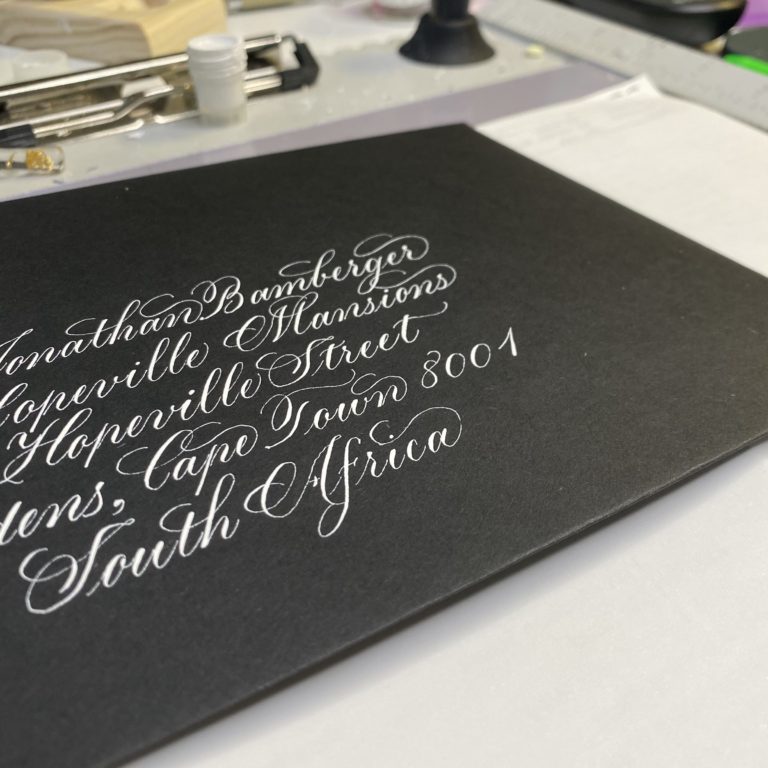 Jonathan Bamberger
Hopeville Mansions
Hopeville Street
Cape Town 8001
South Africa